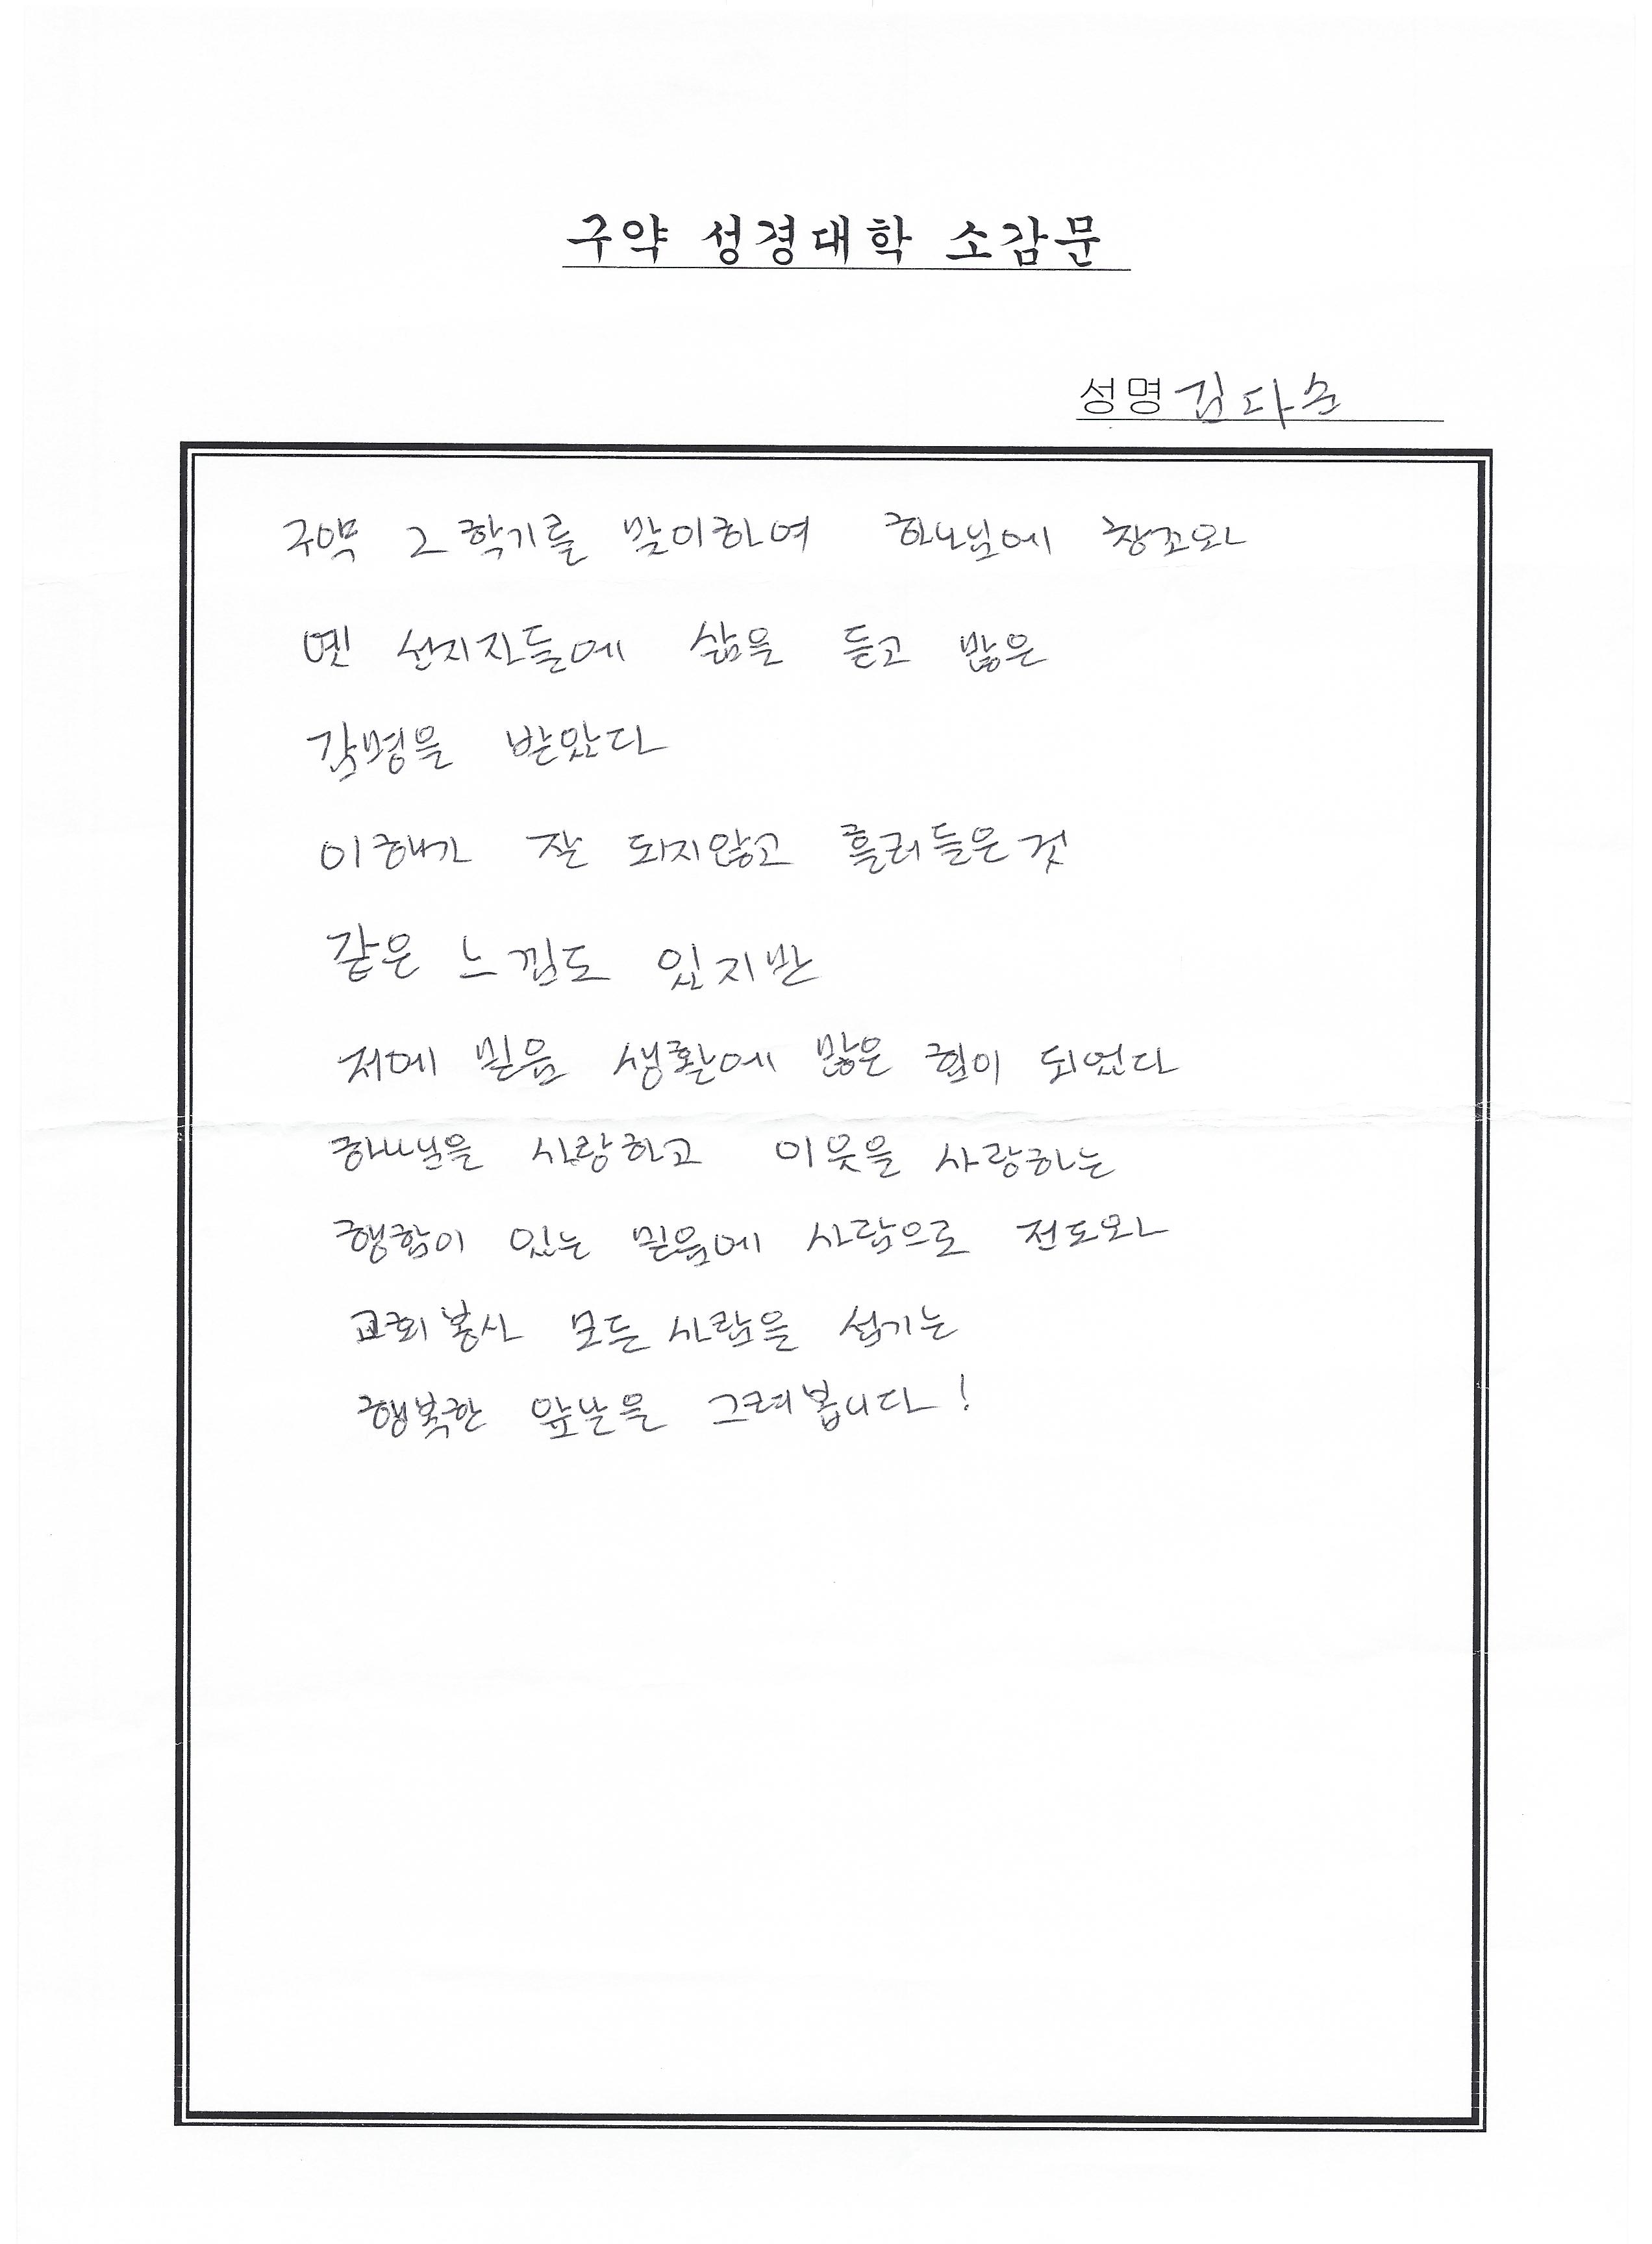 구약 성경대학 소감문
성명 김다순
구약 2학기를 말이하여 하나님에 창조와
옛 선지자들에 삶을 듣고 많은
각명을 받았다
이해가 잘 되지않고 흘러들은것
같은 느낌도 있지만
저에 믿음 생활에 많은 힘이 되었다
하나님을 사랑하고 이웃을 사랑하는
행함이 있는 믿음에 사람으로 전도와
교회봉사 모든 사람을 섬기는
행복한 앞날을 그려봅니다!